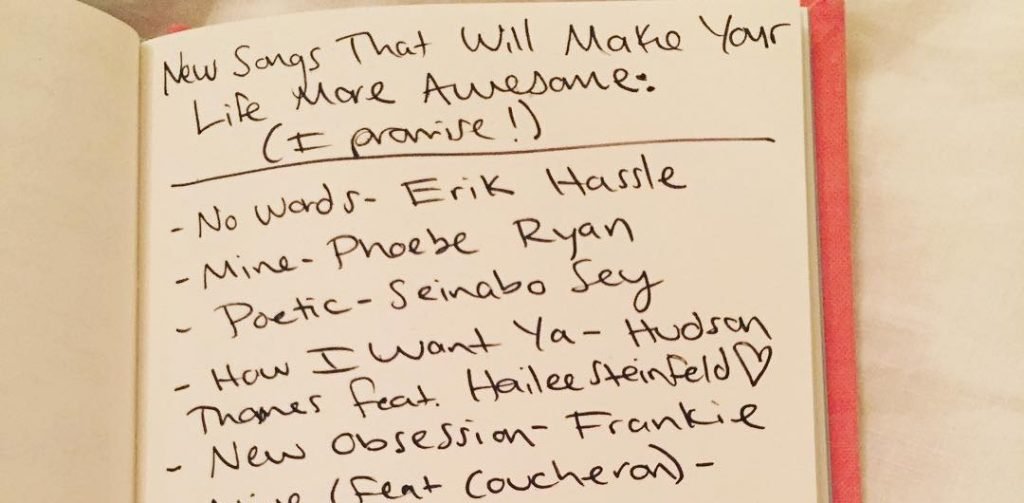 New Songs That Will Make Your
Life More Awesome:
(I promise!)
- No Words- Erik Hassle
- Mine- Phoebe Ryan
- Poetic- Seinabo Sey
- How I Want Ya- Hudson
Thames feat. Hailee Steinfeld♡
- New Obsession- Frankie
(feat Coucheron) -